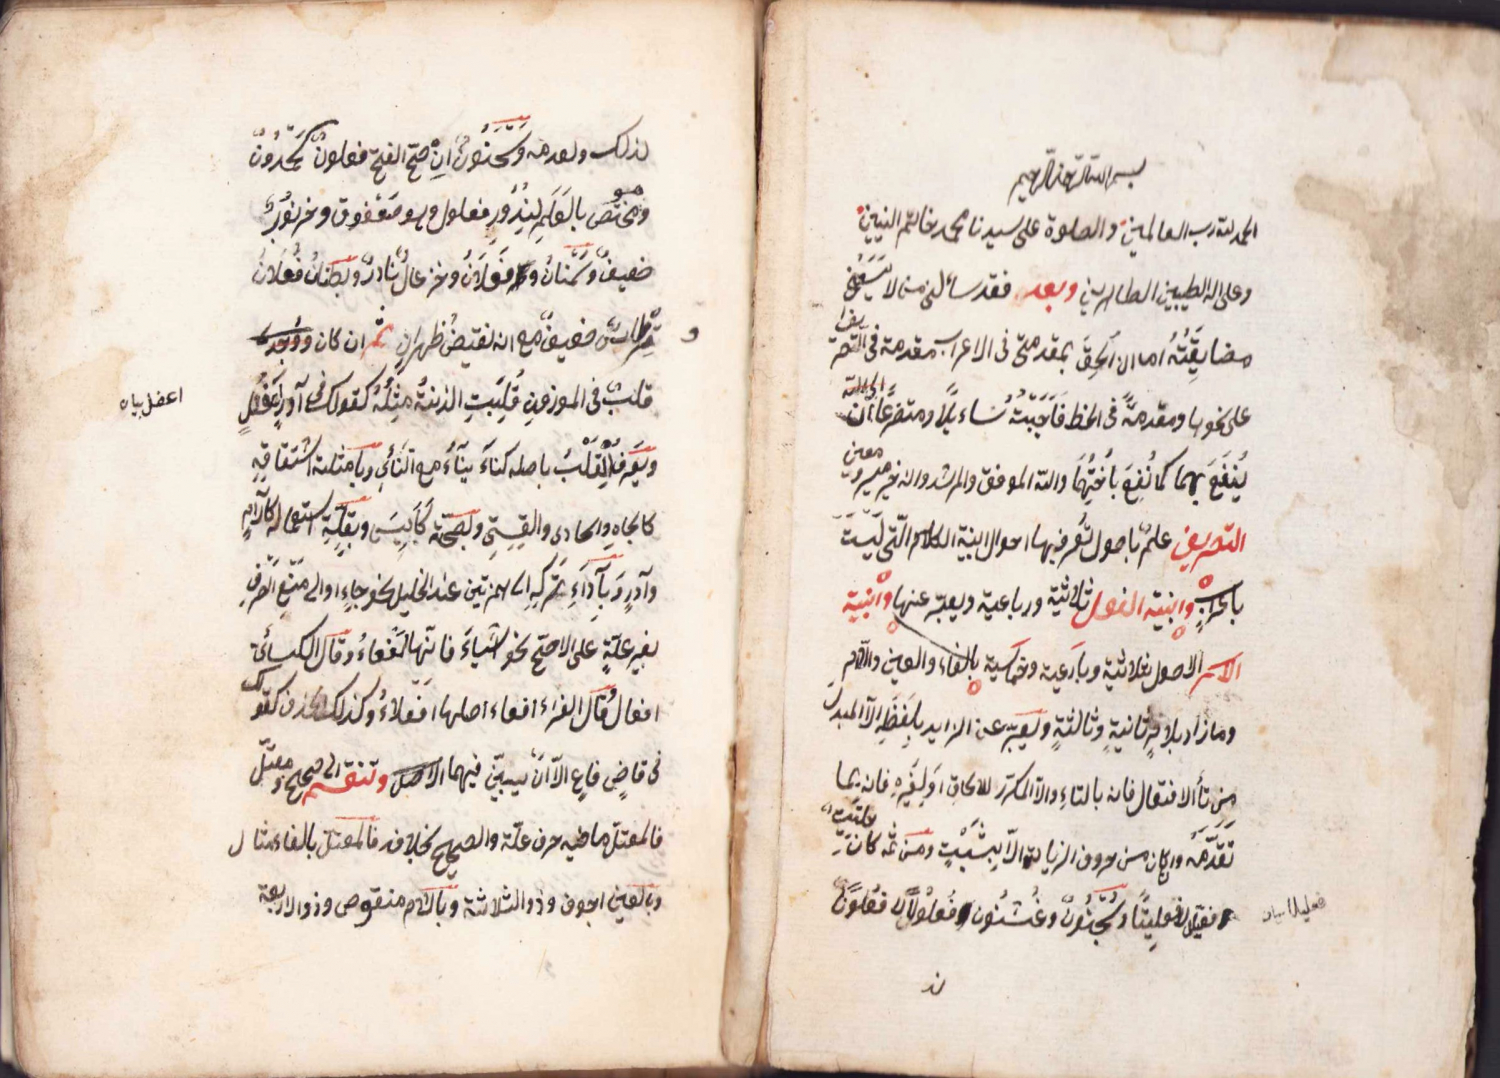 بسم الله الرحمن الرحيم
الحمد لله رب العالمين والصلوة على سيدنا محمد خاتم النبيين
وعلى اله الطيبين الطاهرين وبعد فقد سألنى من لا يسعنى
مخالفته ان الحق بمقدمتى فى الاعراب مقدمة فى التصريف
على نحوها ومقدمة فى الخط فاجبته سائلا متضرعا ان
ينفع بهما كما نفع باختهما والله الموفق والمرشد وانه خير ميسر ومعين
التصريف علم باصول تعرف بها احوال ابنية الكلم التى ليست
باعراب وابنية الفعل ثلاثية ورباعية ويعبر عنها وابنية
الاسم الاصول ثلاثية ورباعية وخماسية بالفاء والعين واللام
وما زاد بلام ثانية وثالثة ويعبر عن الزايد بلفظه الا المبدل
من تاء الافتعال فانه بالتاء والا المكرر للالحاق او لغيره فانه بما
تقدمه وان كان من حروف الزيادة الا بثبت ومن ثمه كان حلتيت
فعليلا لا فعليتا وسحنون وعثنون فعلولا لا فعلون
فعليلا بيان
ند
لذلك ولعدمه وسحنون ان صح الفتح ففعلون كحمدون
وهو مختص بالعلم لندور فعلول وهو صعفوق وخرنوب
ضعيف وسمنان فعلان وخزعال نادر وبطنان فعلان
وقرطاس ضعيف مع انه نقيض ظهران ثم ان كان
قلب فى الموزون قلبت الزنة مثله كقولك فى آدر اعفل
اعفل بيان
ويعرف القلب باصله كناء يناء مع النأى وبامثلة اشتقاقه
كالجاه والحادى والقسى وبصحته كأيس وبقلة استعماله كآرام
وآدر وباداء تركه الى همزتين عند الخليل نحو جاء او الى منع الصرف
بغير علة على الاصح نحو اشياء فانها لفعاء وقال الكسائى
افعال وقال الفراء افعاء اصلها افعلاء وكذلك الحذف كقولك
فى قاض فاع الا ان يبين فيهما الاصل وتنقسم الى صحيح ومعتل
فالمعتل ما فيه حرف علة والصحيح بخلافه فالمعتل بالفاء مثال
وبالعين اجوف وذو الثلاثة وباللام منقوص وذو الاربعة